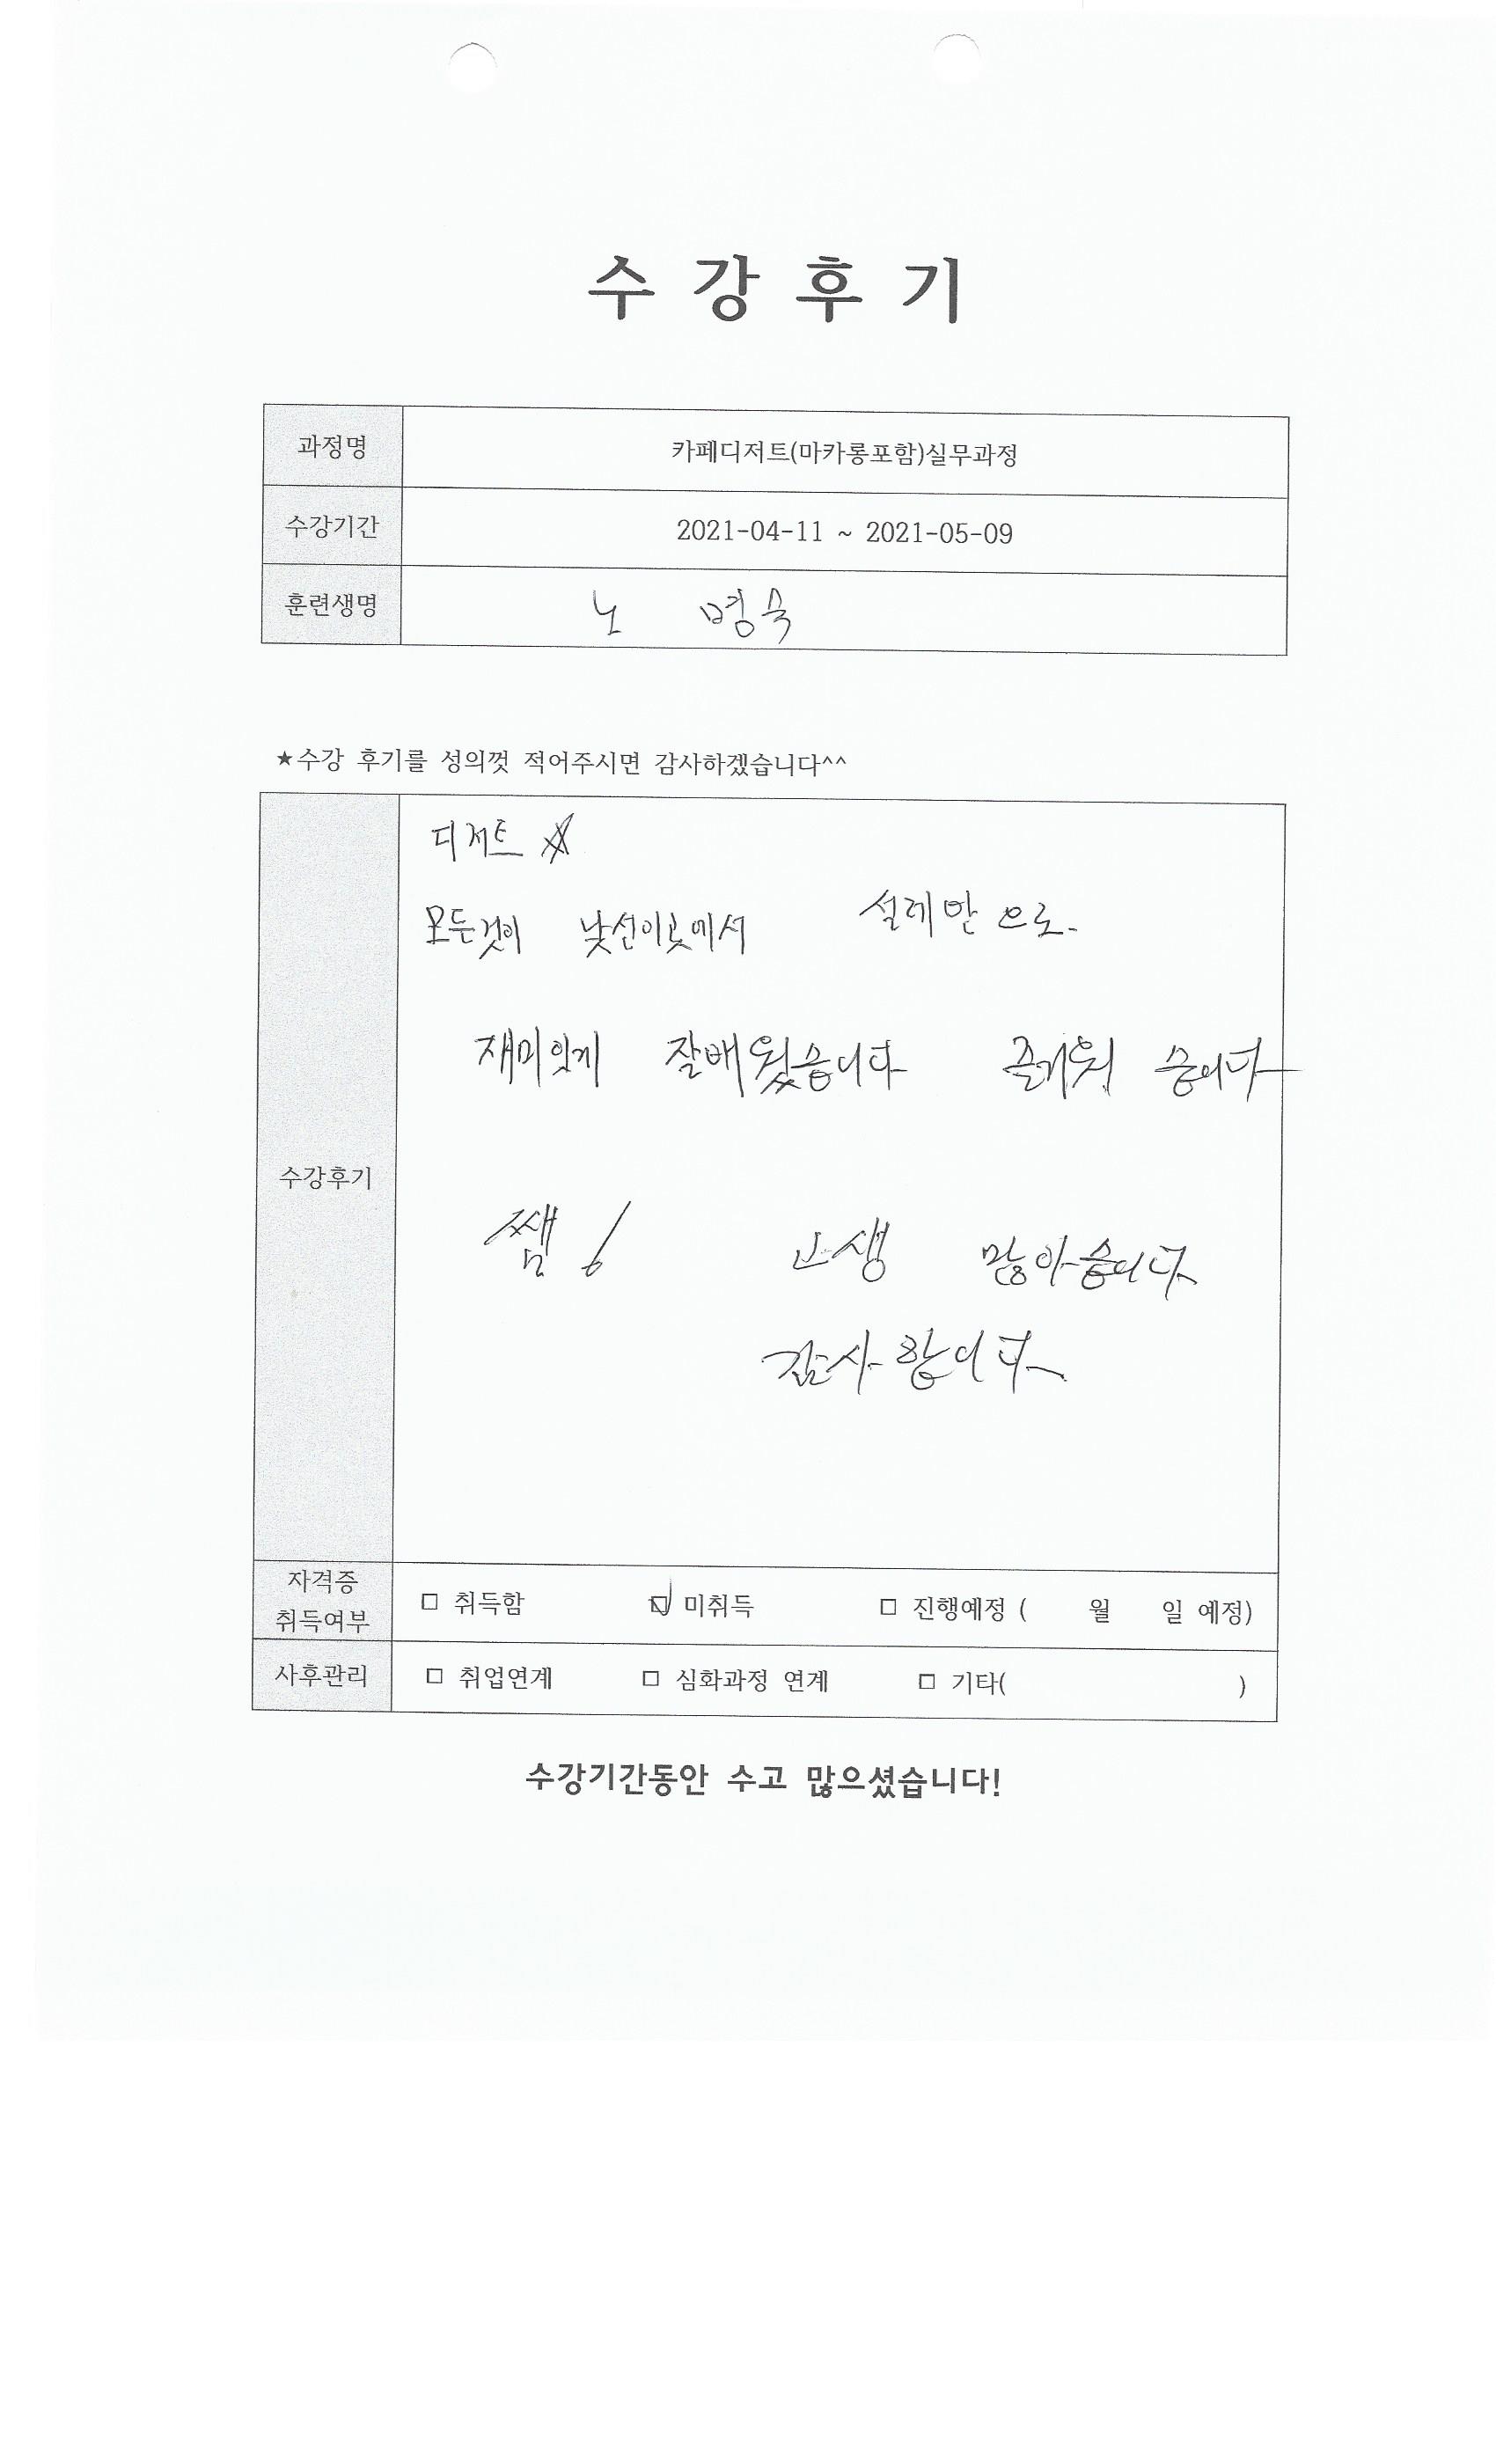 수 강 후 기
과정명 카페디저트(마카롱포함)실무과정
수강기간 2021-04-11 ~ 2021-05-09
훈련생명 노 명숙
★수강 후기를 성의껏 적어주시면 감사하겠습니다^^
디저트 ☆
모든것이 낯선이곳에서 설레맘 으로.
재미있게 잘배웠습니다 즐거워 습니다
수강후기
쌤! 고생 많아습니다
감사합니다
자격증
취득여부 □ 취득함 ☑ 미취득 □ 진행예정 ( 월 일 예정)
사후관리 □ 취업연계 □ 심화과정 연계 □ 기타( )
수강기간동안 수고 많으셨습니다!